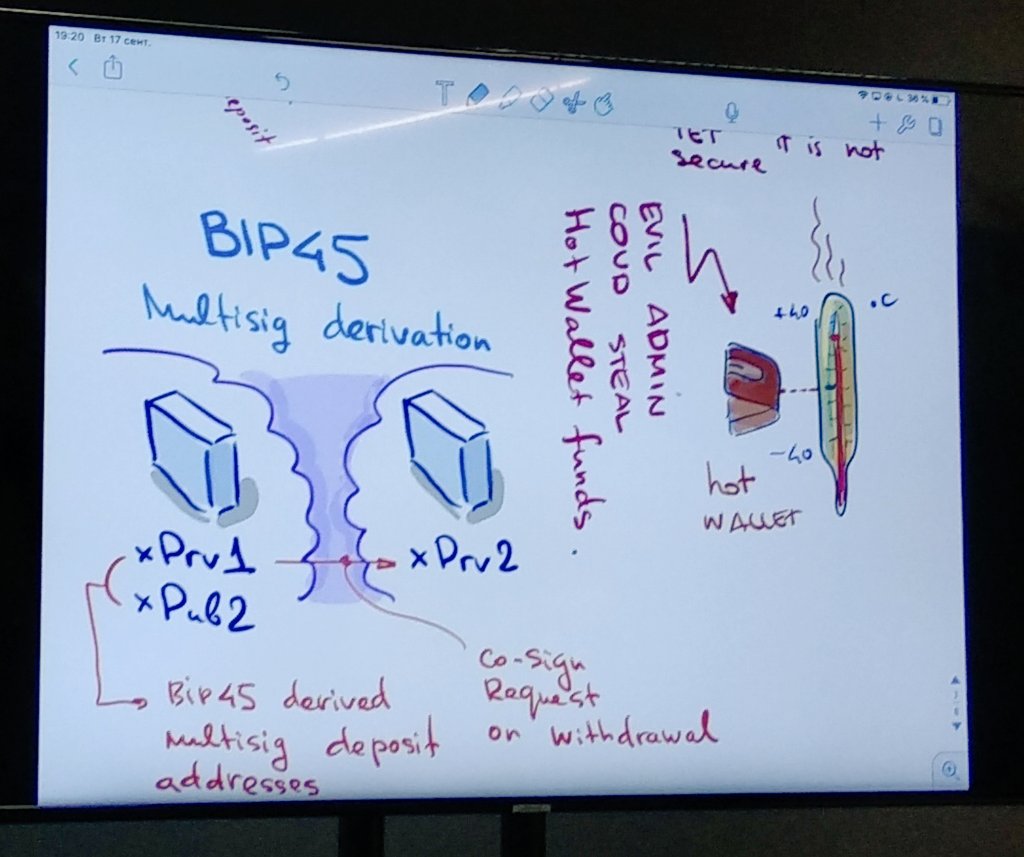 19:20 Вт 17 сент.
36 %
eposit
YET
secure
IT is not
BIP45
Multisig derivation
EVIL ADMIN
COUD STEAL
Hot Wallet funds.
+40
°C
-40
hot
WALLET
xPrv1
xPub2
xPrv2
Co-Sign
Request
on withdrawal
Bip45 derived
multisig deposit
addresses